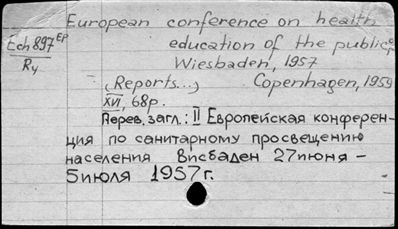 European conference on health
Ech 897 EP
Ry
education of the public,
Wiesbaden, 1957
(Reports...) Copenhagen, 1959
XVI, 68p.
Перев. загл.: II Европейская конферен-
ция по санитарному просвещению
населения Висбаден 27 июня –
5 июля 1957 г.